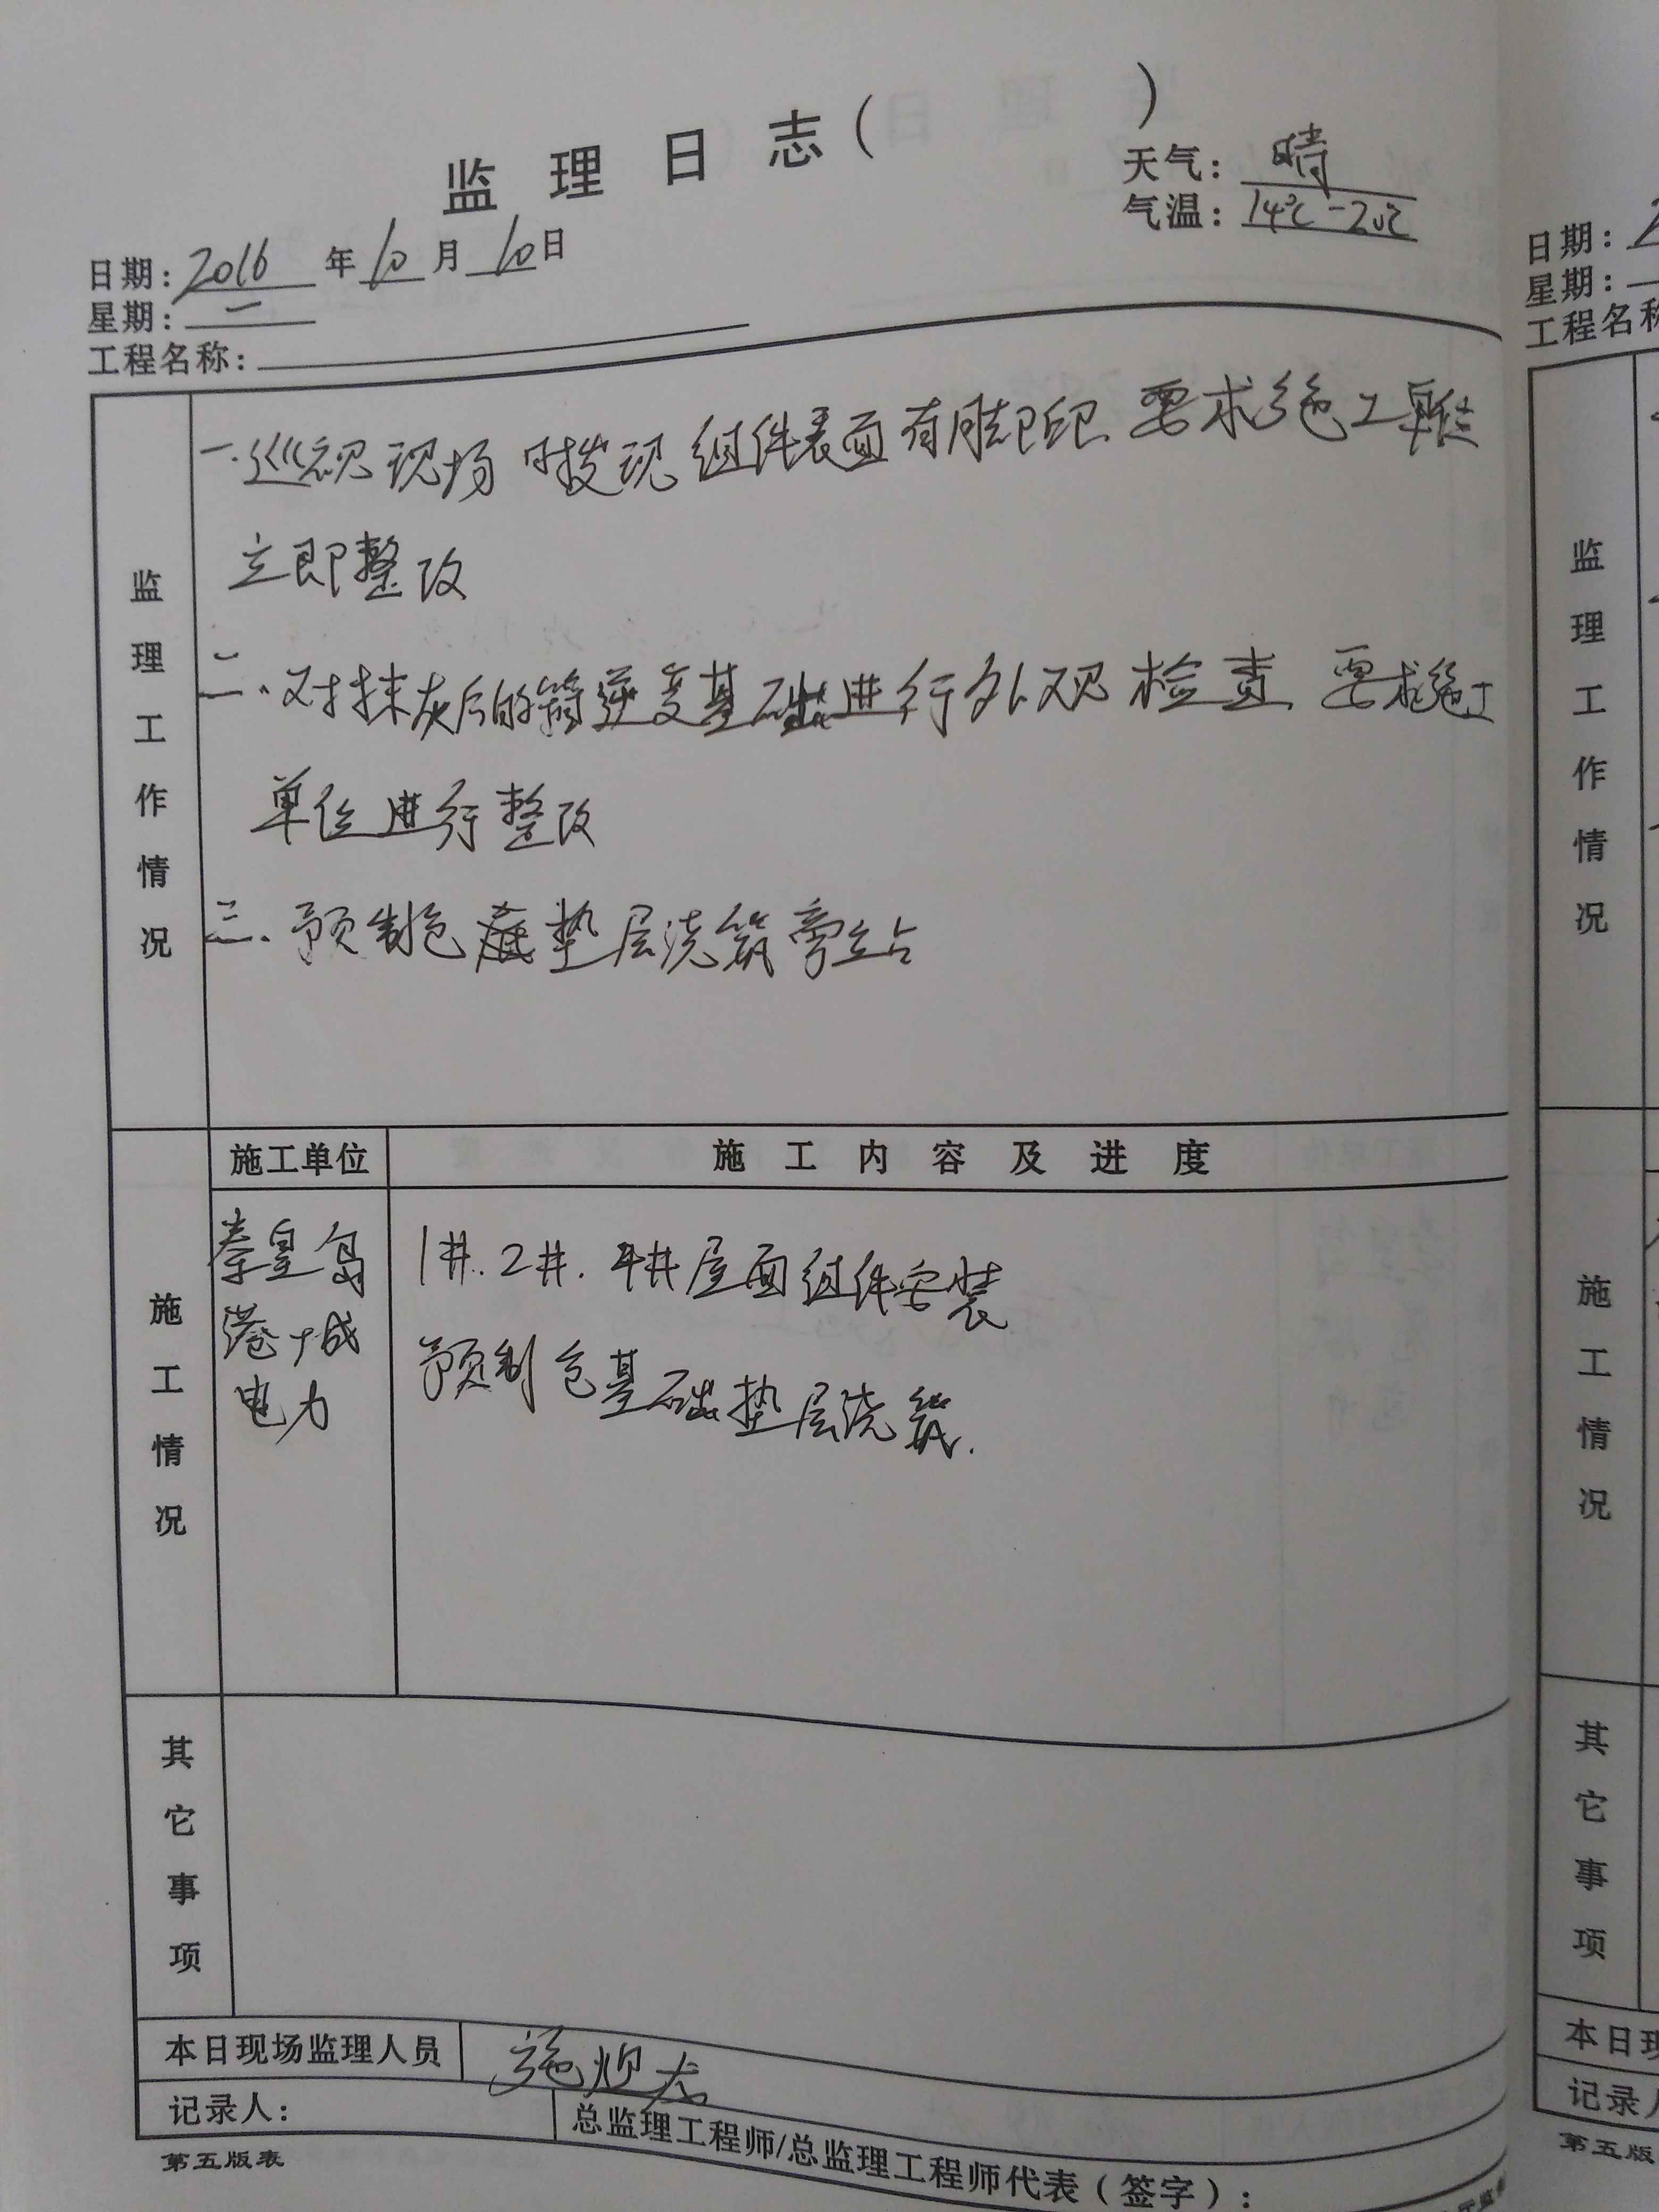 监理日志( )
天气:晴
气温:14℃-20℃
日期:2016年10月10日
星期:一
工程名称:
监理工作情况
一.巡视现场时发现组件表面有脚印.要求施工单位
立即整改
二.对抹灰后的箱逆变基础进行外观检查.要求施工
单位进行整改
三.预制仓基垫层浇筑旁站
施工情况
施工单位
施工内容及进度
秦皇岛
港城
电力
1#.2#.4#屋面组件安装
预制仓基础垫层浇筑.
其它事项
本日现场监理人员
施
记录人:
总监理工程师/总监理工程师代表(签字):
第五版表
日期:2
星期:
工程名称
监理工作情况
施工情况
其它事项
本日现
记录人
第五版